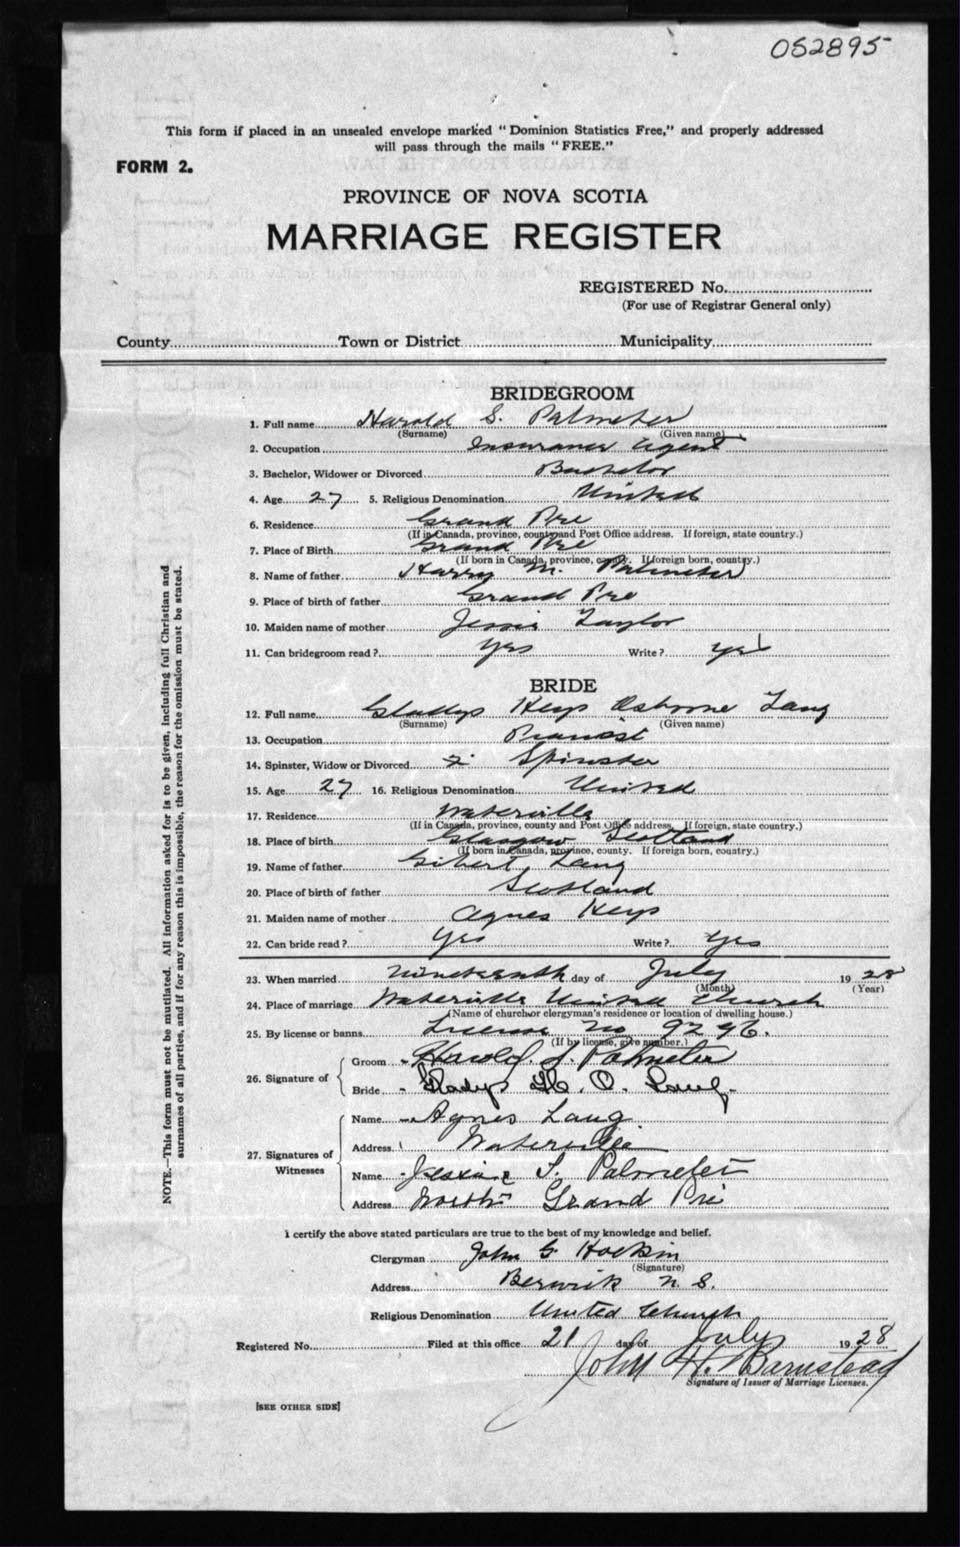 052895
This form if placed in an unsealed envelope marked "Dominion Statistics Free," and properly addressed
will pass through the mails "FREE."
FORM 2.
PROVINCE OF NOVA SCOTIA
MARRIAGE REGISTER
REGISTERED No.
(For use of Registrar General only)
County Town or District Municipality
BRIDEGROOM
1. Full name Harold S. Palmeter
(Surname) (Given name)
2. Occupation Insurance Agent
3. Bachelor, Widower or Divorced Bachelor
4. Age 27 5. Religious Denomination United
6. Residence Grand Pre
(If in Canada, province, county and Post Office address. If foreign, state country.)
7. Place of Birth Grand Pre
(If born in Canada, province, county. If foreign born, country.)
8. Name of father Harry M. Palmeter
9. Place of birth of father Grand Pre
10. Maiden name of mother Jessie Taylor
11. Can bridegroom read? Yes Write? yes
BRIDE
12. Full name Gladys Keys Osborne Lang
(Surname) (Given name)
13. Occupation Pianist
14. Spinster, Widow or Divorced Spinster
15. Age 27 16. Religious Denomination United
17. Residence Waterville
(If in Canada, province, county and Post Office address. If foreign, state country.)
18. Place of birth Glasgow Scotland
(If born in Canada, province, county. If foreign born, country.)
19. Name of father Gilbert Lang
20. Place of birth of father Scotland
21. Maiden name of mother Agnes Keys
22. Can bride read? Yes Write? Yes
23. When married nineteenth day of July 1928
(Month) (Year)
24. Place of marriage Waterville United Church
(Name of church or clergyman's residence or location of dwelling house.)
25. By license or banns License No 9296.
(If by license, give number.)
26. Signature of
Groom Harold S. Palmeter
Bride Gladys K. O. Lang
27. Signatures of Witnesses
Name Agnes Lang
Address Waterville
Name T. Palmeter
Address North Grand Pré
I certify the above stated particulars are true to the best of my knowledge and belief.
Clergyman John G Hockin
(Signature)
Address Berwick N. S.
Religious Denomination United Church
Registered No. Filed at this office 21 day of July 1928
John H. Barnstead
Signature of Issuer of Marriage Licenses.
[SEE OTHER SIDE]
NOTE.—This form must not be mutilated. All information asked for is to be given, including full Christian and
surnames of all parties, and if for any reason this is impossible, the reason for the omission must be stated.